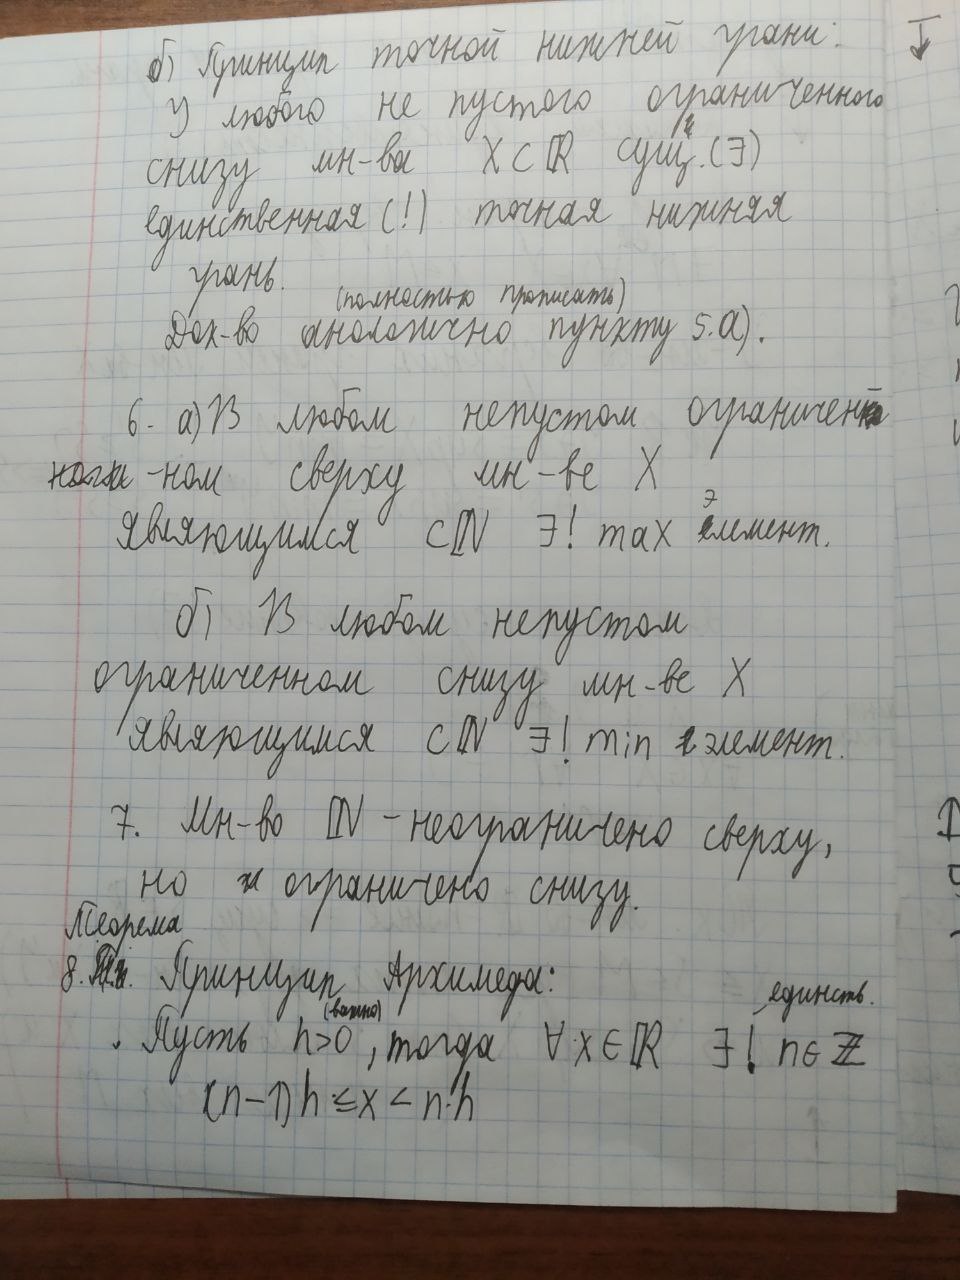 б) Принцип точной нижней грани:
У любого не пустого ограниченного
снизу мн-ва X⊂ℝ сущ.(∃)
единственная (!) точная нижняя
грань.
(полностью прописать)
Док-во аналогично пункту 5.а).
6. а) В любом непустом ограничен
-ном сверху мн-ве X
являющимся ⊂ℕ ∃! max элемент.
б) В любом непустом
ограниченном снизу мн-ве X
являющимся ⊂ℕ ∃! min элемент.
7. Мн-во ℕ - неограничено сверху,
но ограничено снизу.
Теорема
8. Принцип Архимеда:
(важно) единств.
Пусть h>0, тогда ∀x∈ℝ ∃! n∈ℤ
(n-1)h ≤ x < n·h